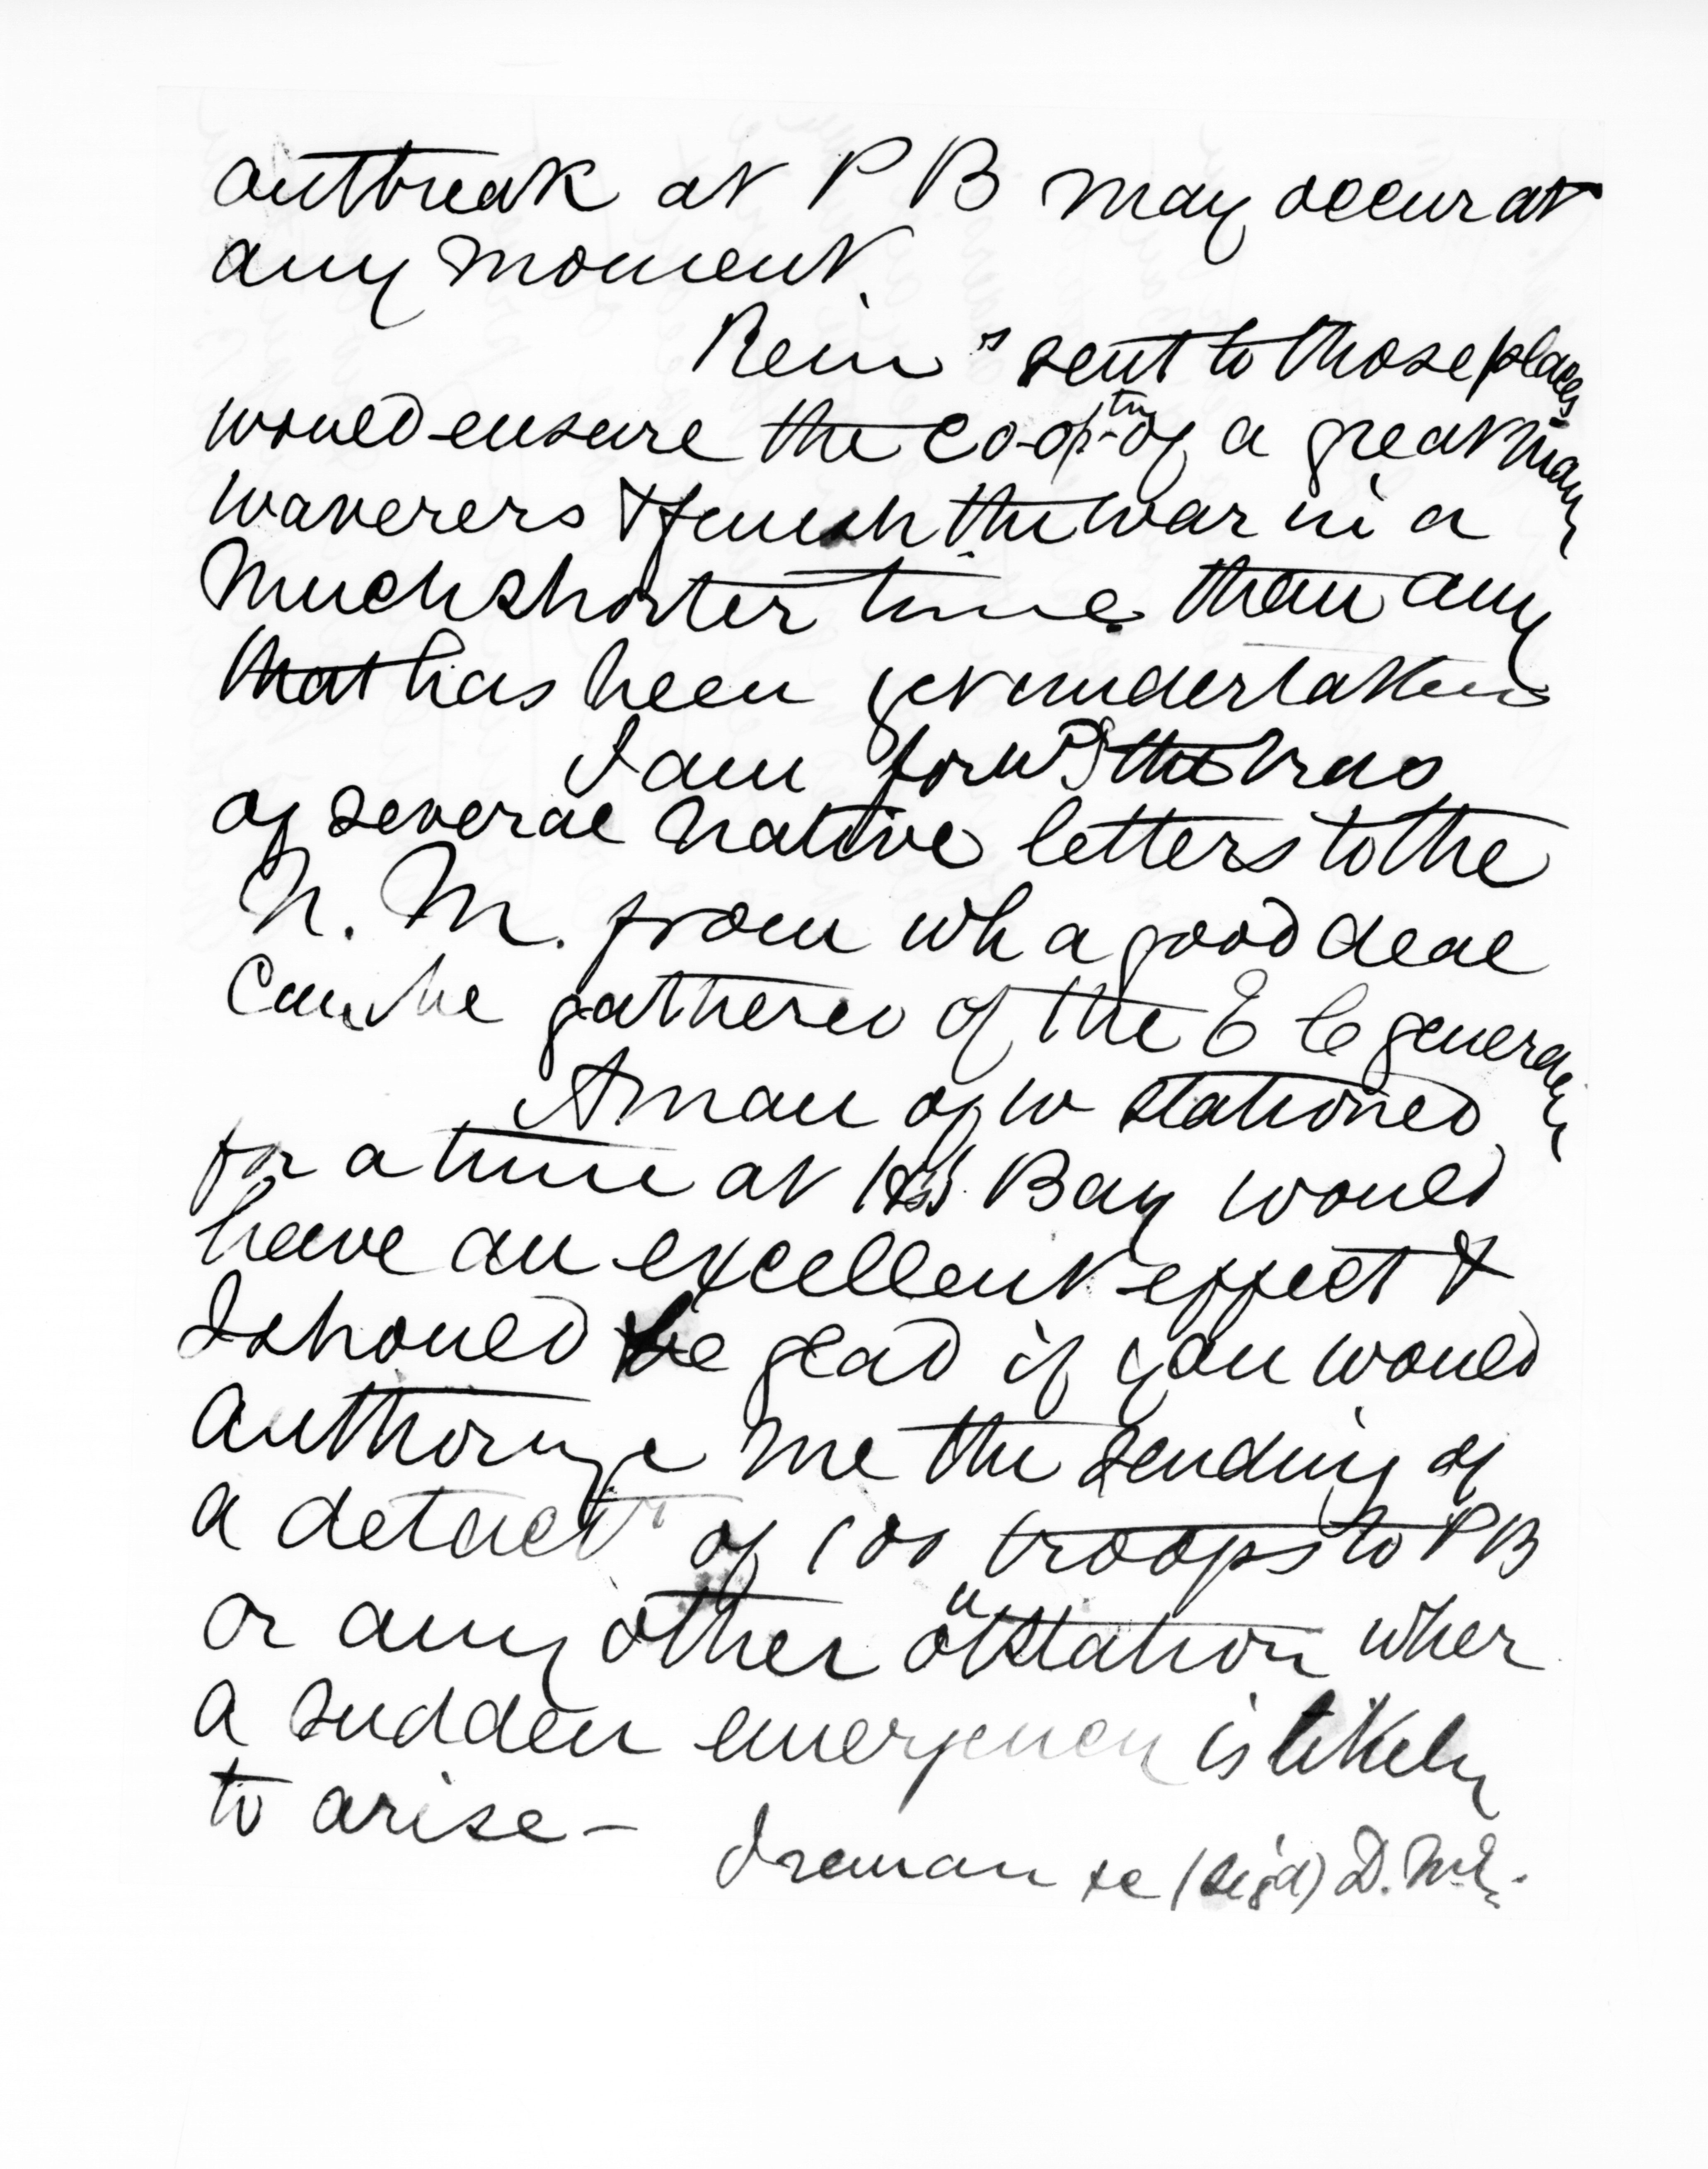 outbreak at P B may occur at
any moment.
Rein^s sent to those places
would ensure the co-op^tn of a great many
waverers & finish the war in a
much shorter time than any
that has been yet undertaken
I am forw^dg the trns
of several native letters to the
N. M. from wh a good deal
can be gathered of the E C generally
A man of w stationed
for a time at Bay would
have an excellent effect &
I should be glad if you would
authorize me the sending of
a detach^t of 100 troops to P B
or any other outstation wher
a sudden emergency is likely
to arise –
I reman &c (sigd) D. McL.